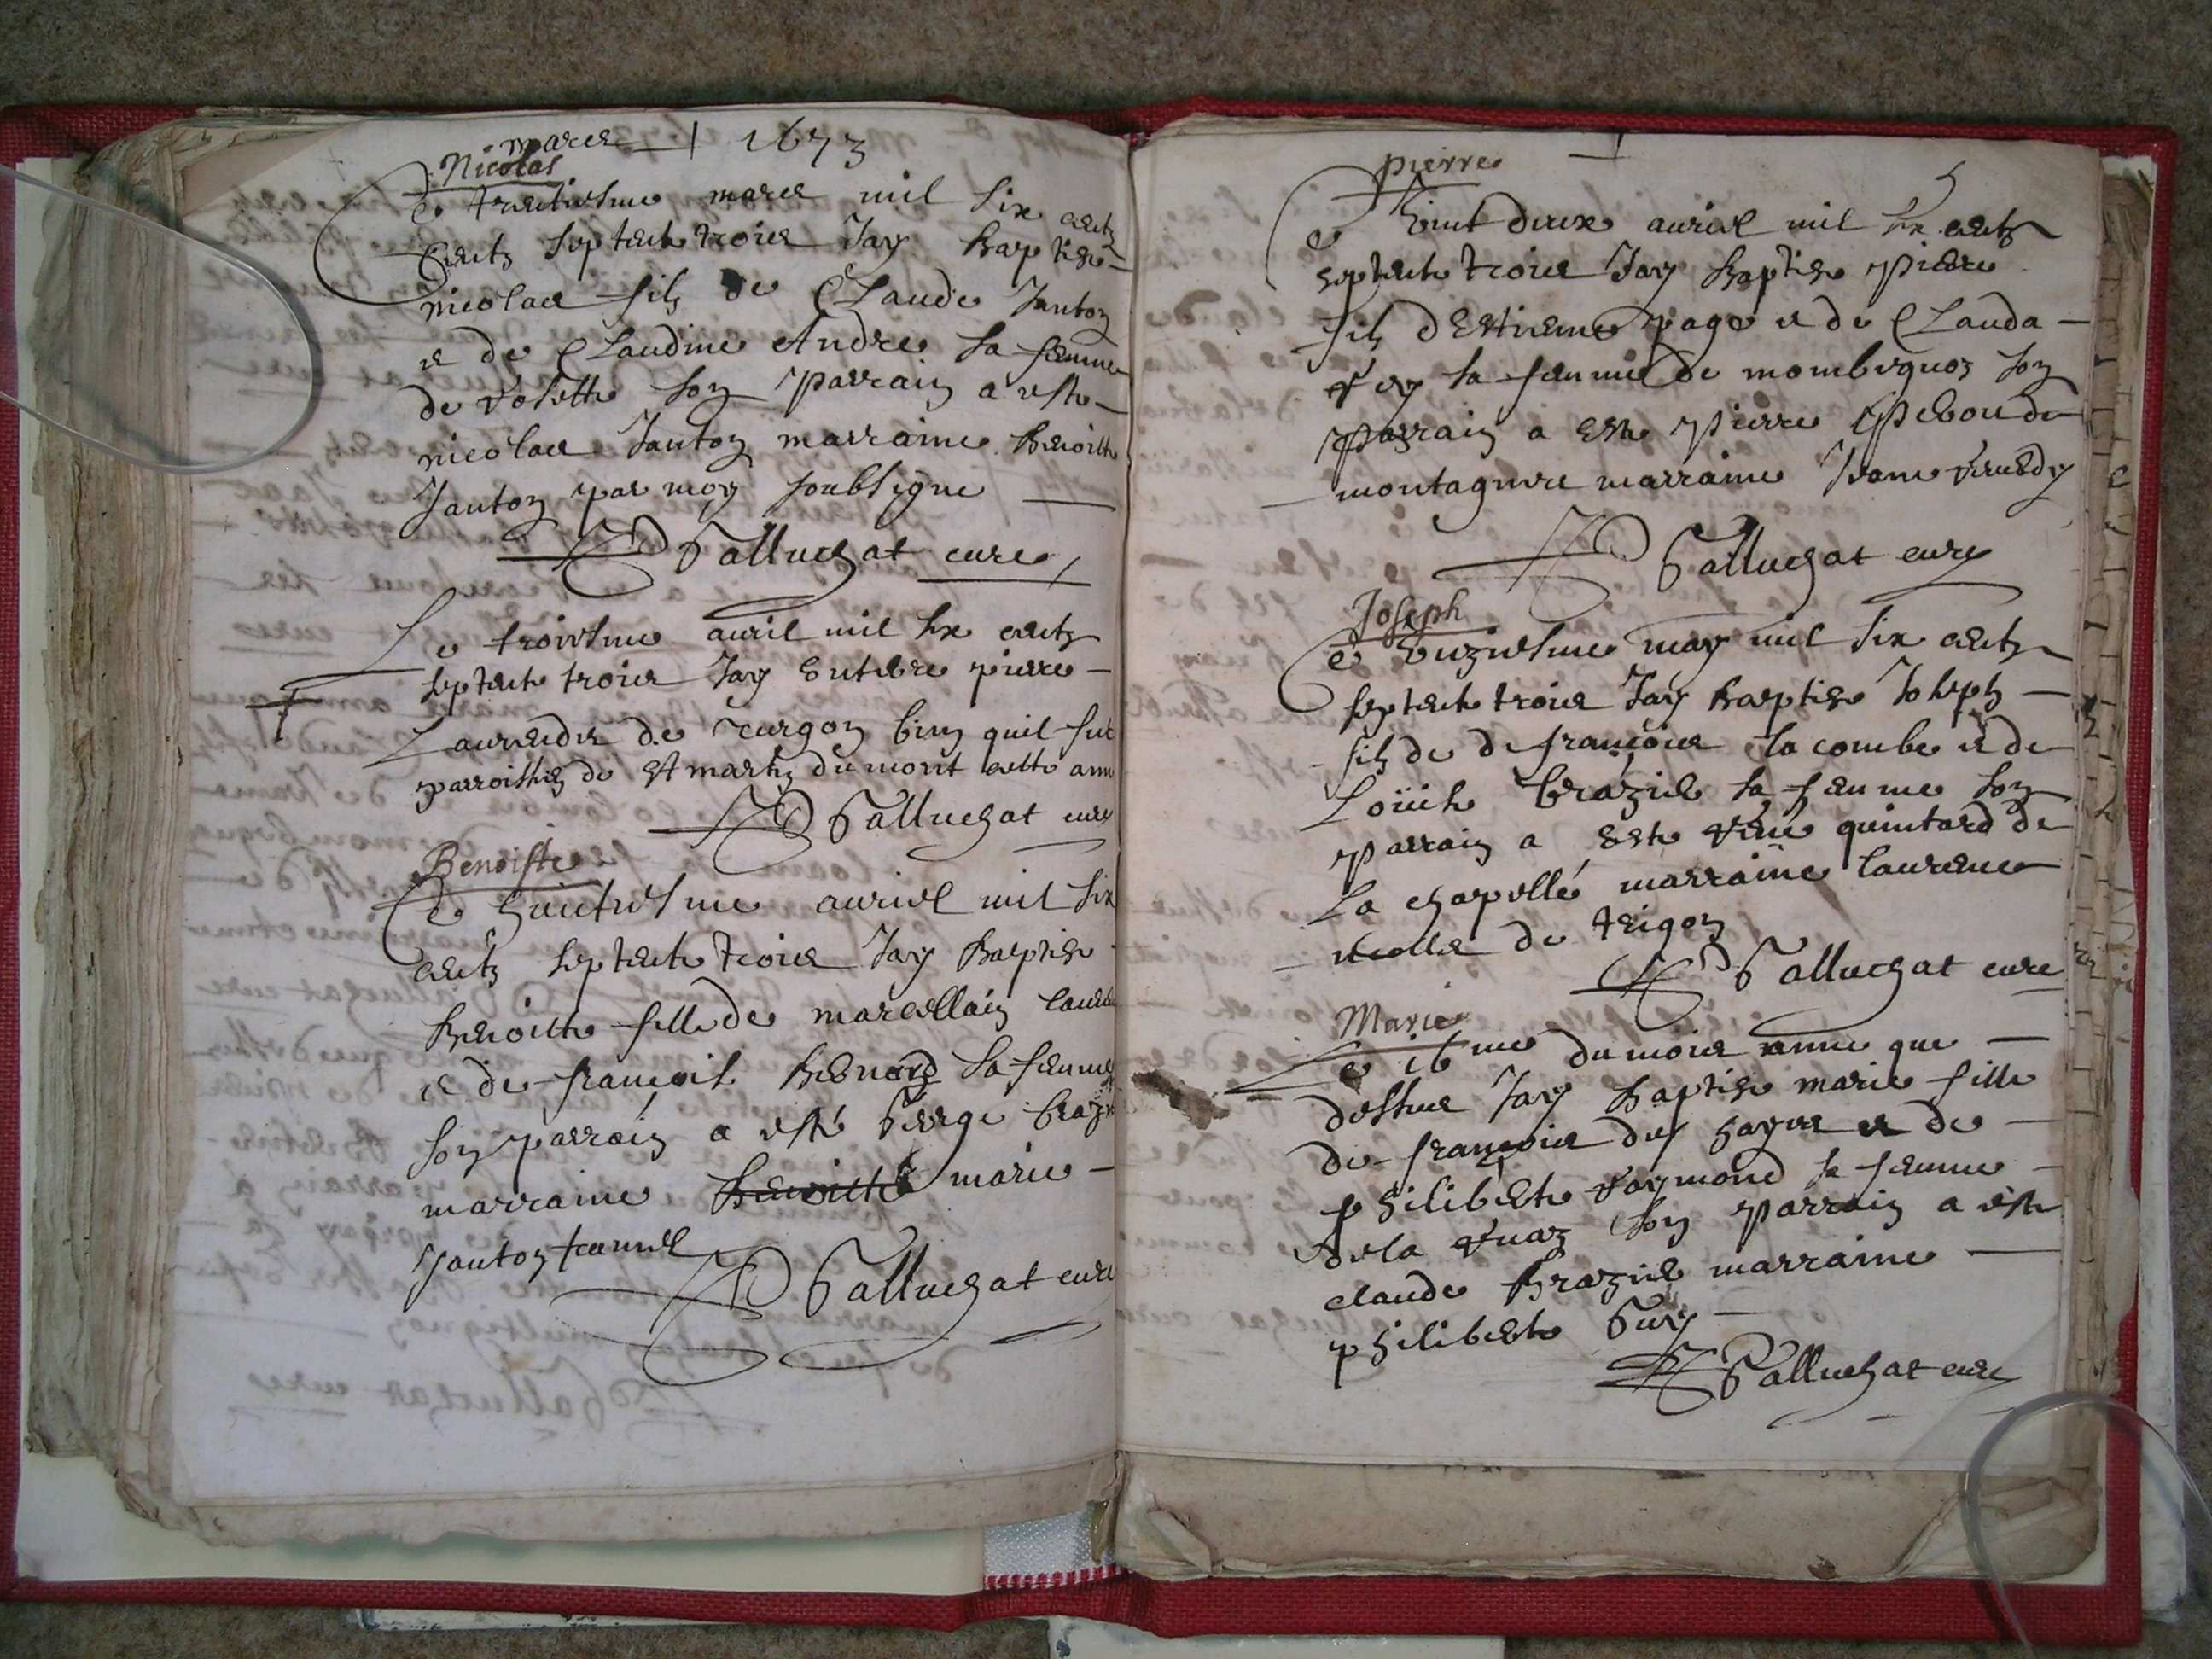 mars 1673
Nicolas
Le trentiesme mars mil six cents
cents septente trois Jay baptisé
nicolas filz de Claude Janton
et de Claudine Andre sa femme
de Rosette son parrain a esté
nicolas Janton marraine benoitte
Janton par moy soubsigne
Palluchat curé
Le troisiesme auril mil six cents
septente trois Jay enterre pierre
de bien quil fut
parroissien de St martin du mont cette ann
Palluchat curé
Benoiste
Le huictiesme auriel mil six
cents septente trois Jay baptise
benoitte fille de marcellain
et de francoise bernard sa femme
son parrain a esté
marraine benoitte marie
Janton
Palluchat curé
pierre
5
Le vint deux auriel mil six cents
septente trois Jay baptise pierre
filz dEstienne page et de Clauda
Rey sa femme de mombegnoz son
parrain a este pierre de
montagneu marraine Jeane
Palluchat curé
Joseph
Le unziesme may mil six cents
septente trois Jay baptise Joseph
filz de de françois la combe et de
Loüise braziel sa femme son
parrain a este René quintard de
La chapelle marraine laurence
de
Palluchat curé
Marie
Le 16me du mois anne que
dessus Jay baptise marie fille
de françois du et de
philiberte Raymond sa femme
de la Ruaz son parrain a este
claude braziel marraine
philiberte
Palluchat curé